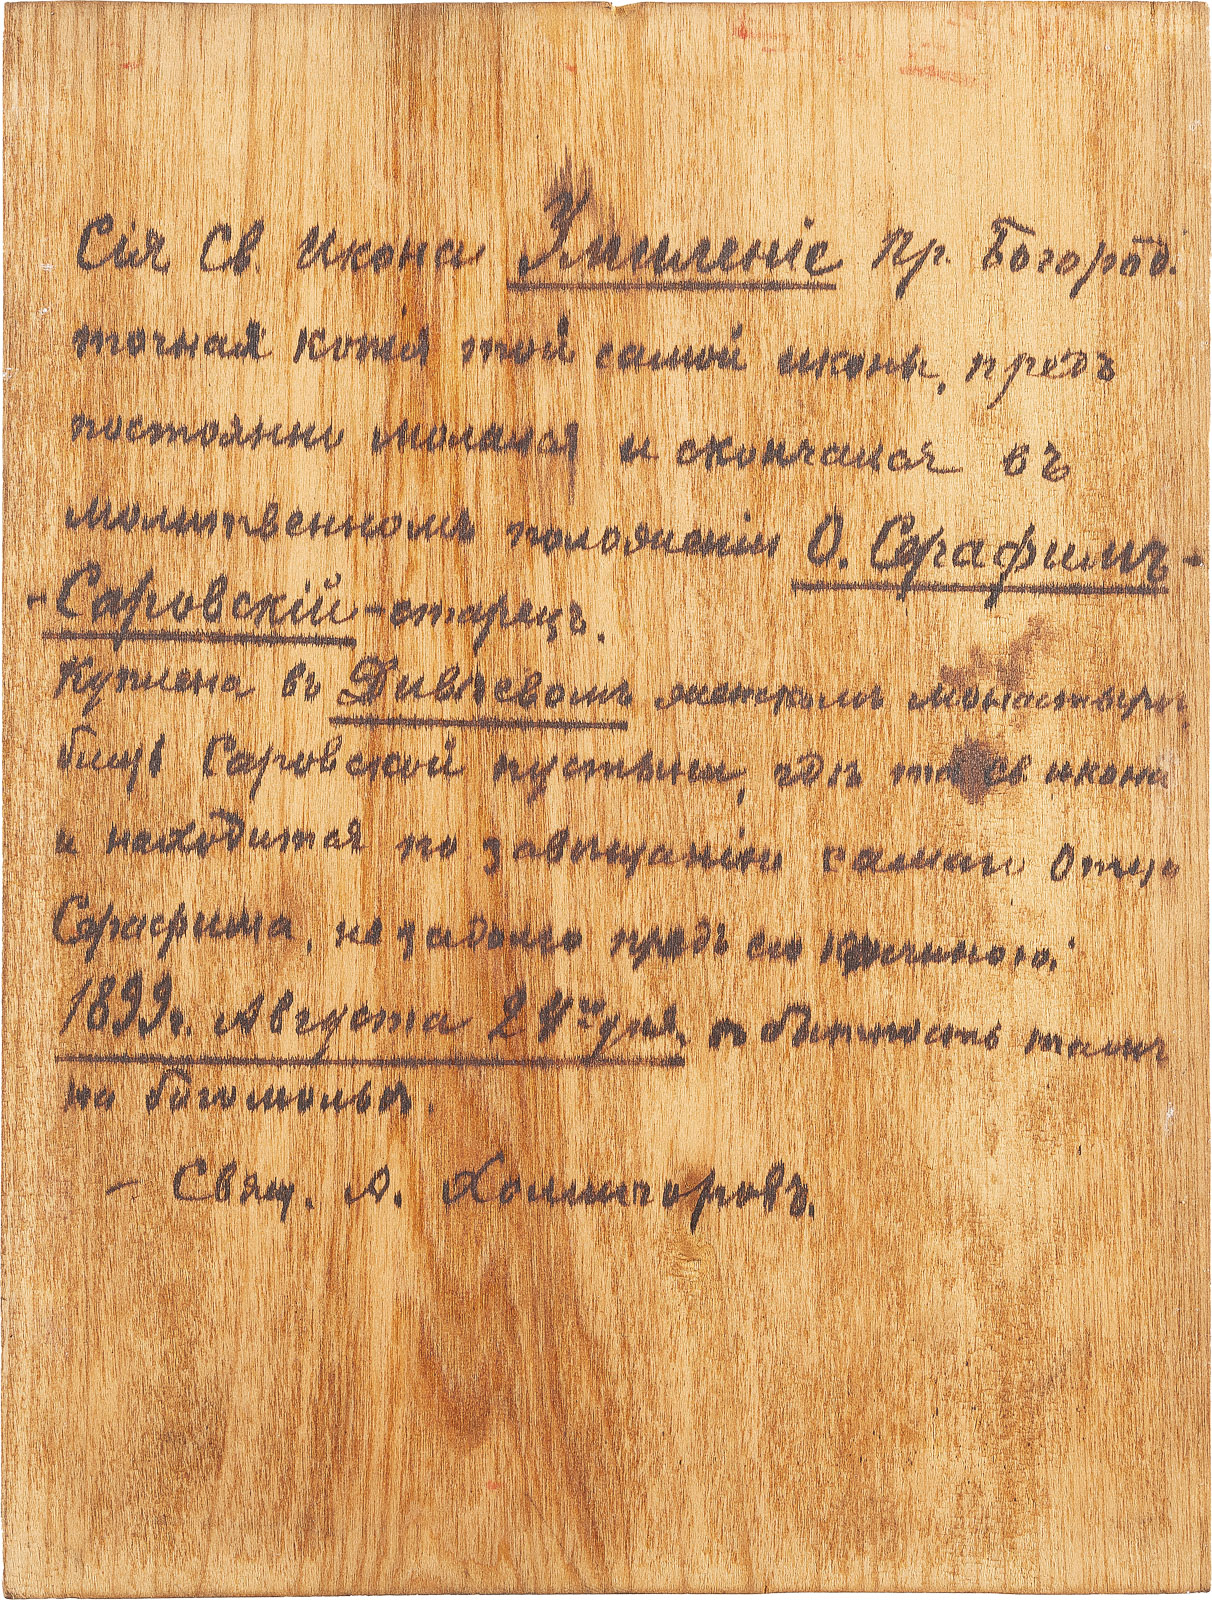 Сія Св. Икона Умиленіе Пр. Богород.
точная копія той самой иконы, предъ
постоянно молился и скончался въ
молитвенномъ положеніи О. Серафимъ-
-Саровскій-старецъ.
Куплена въ Дивѣевомъ женскомъ монастырѣ,
близъ Саровской пустыни, гдѣ та св икона
и находится по завѣщанію самаго Отца
Серафима, не задолго предъ его кончиною.
1899г. Августа 24го дня, въ бытность мою
на богомольѣ.
- Свящ. А. Холмогоровъ.